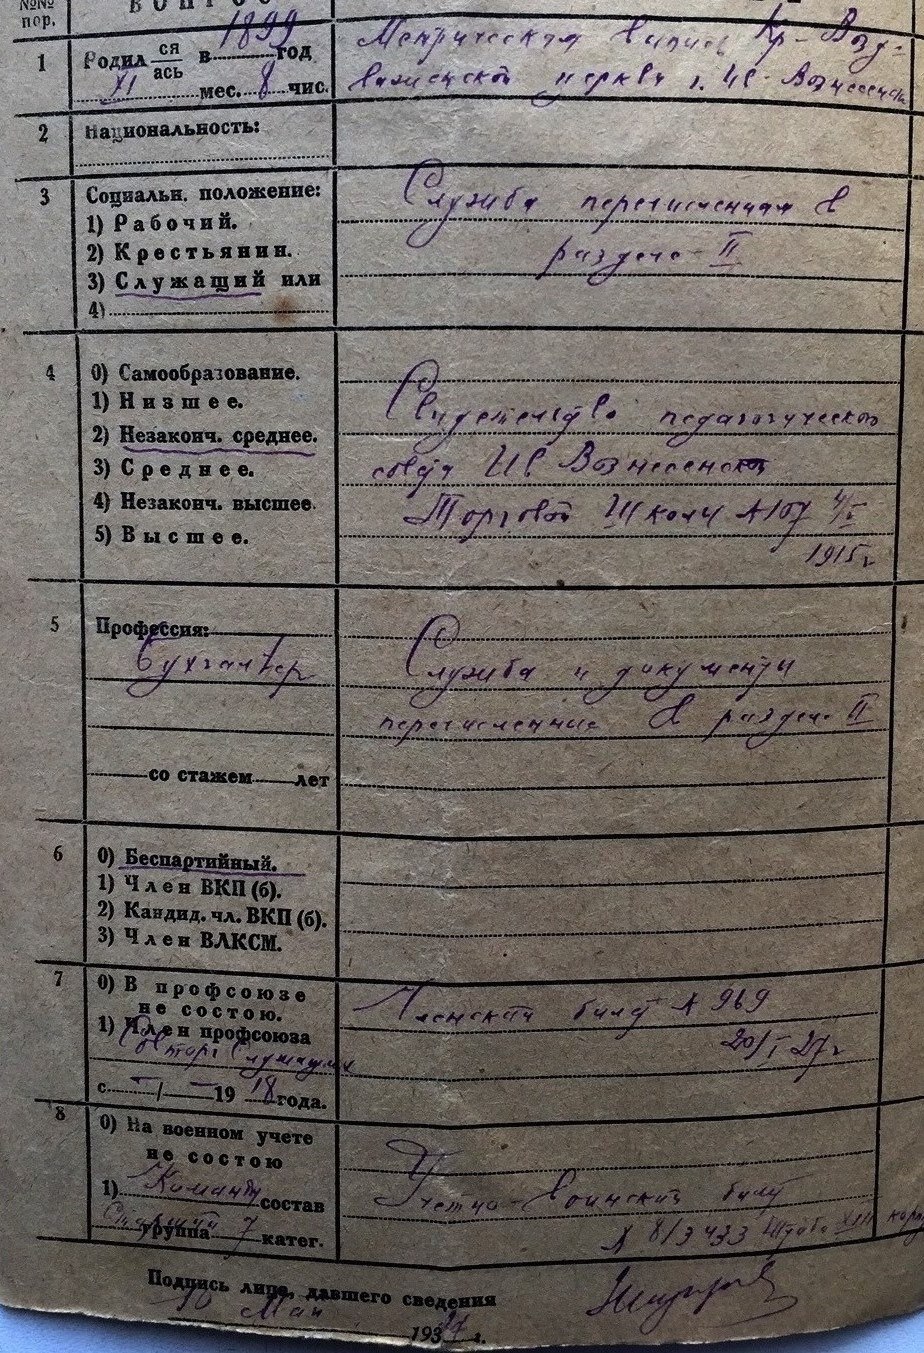 №№ пор.
В О П Р О С
1
Родил ся ась в 1899 год
XI мес. 8 чис.
Метрическая выпись Кр-Воздвиженской церкви г. Ив-Вознесенск
2
Национальность:
3
Социальн. положение:
1) Рабочий.
2) Крестьянин.
3) Служащий или
4)
Служба перечисленная в
разделе II
4
0) Самообразование.
1) Низшее.
2) Незаконч. среднее.
3) Среднее.
4) Незаконч. высшее.
5) Высшее.
Свидетельство педагогического
совета Ив Вознесенской
Торговой Школы №107 4/V
1915 г
5
Профессия:
Бухгалтер
со стажем лет
Служба и документы
перечисленные в разделе II
6
0) Беспартийный.
1) Член ВКП (б).
2) Кандид. чл. ВКП (б).
3) Член ВЛКСМ.
7
0) В профсоюзе
не состою.
1) Член профсоюза
Совторг Служащих
с - / - 19 18 года.
Членский билет № 969
20/I 27 г
8
0) На военном учете
не состою
1) Команд состав
Старший группа 7 катег.
Учетно-Воинский билет
№ 819433 Штаба XIII корп
Подпись лица, давшего сведения
10 Мая 193 г.